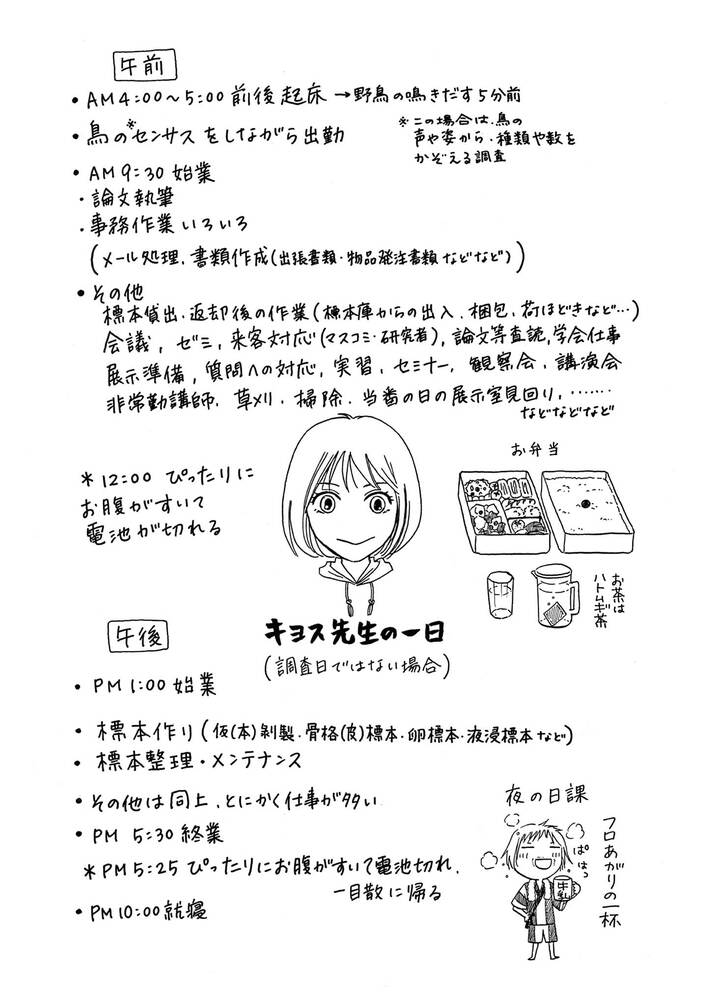 午前
・AM4:00〜5:00前後起床→野鳥の鳴きだす5分前
・鳥の※センサスをしながら出勤
※この場合は、鳥の
声や姿から、種類や数を
かぞえる調査
・AM9:30始業
・論文執筆
・事務作業いろいろ
(メール処理、書類作成(出張書類・物品発注書類などなど))
・その他
標本貸出・返却後の作業(標本庫からの出入、梱包、荷ほどきなど…)
会議、ゼミ、来客対応(マスコミ・研究者)、論文等査読、学会仕事
展示準備、質問への対応、実習、セミナー、観察会、講演会
非常勤講師、草メリ、掃除、当番の日の展示室見回り、・・・・・・・
などなどなど
*12:00 ぴったりに
お腹がすいて
電池が切れる
お弁当
お茶は
ハトムギ茶
キヨス先生の一日
(調査日ではない場合)
午後
・PM1:00始業
・標本作り(仮(本)剝製・骨格(皮)標本・卵標本・液浸標本など)
・標本整理・メンテナンス
・その他は同上、とにかく仕事が多い
・PM 5:30終業
*PM5:25ぴったりにお腹がすいて電池切れ、
一目散に帰る
・PM10:00就寝
夜の日課
フロあがりの一杯
ぱはっ
牛乳